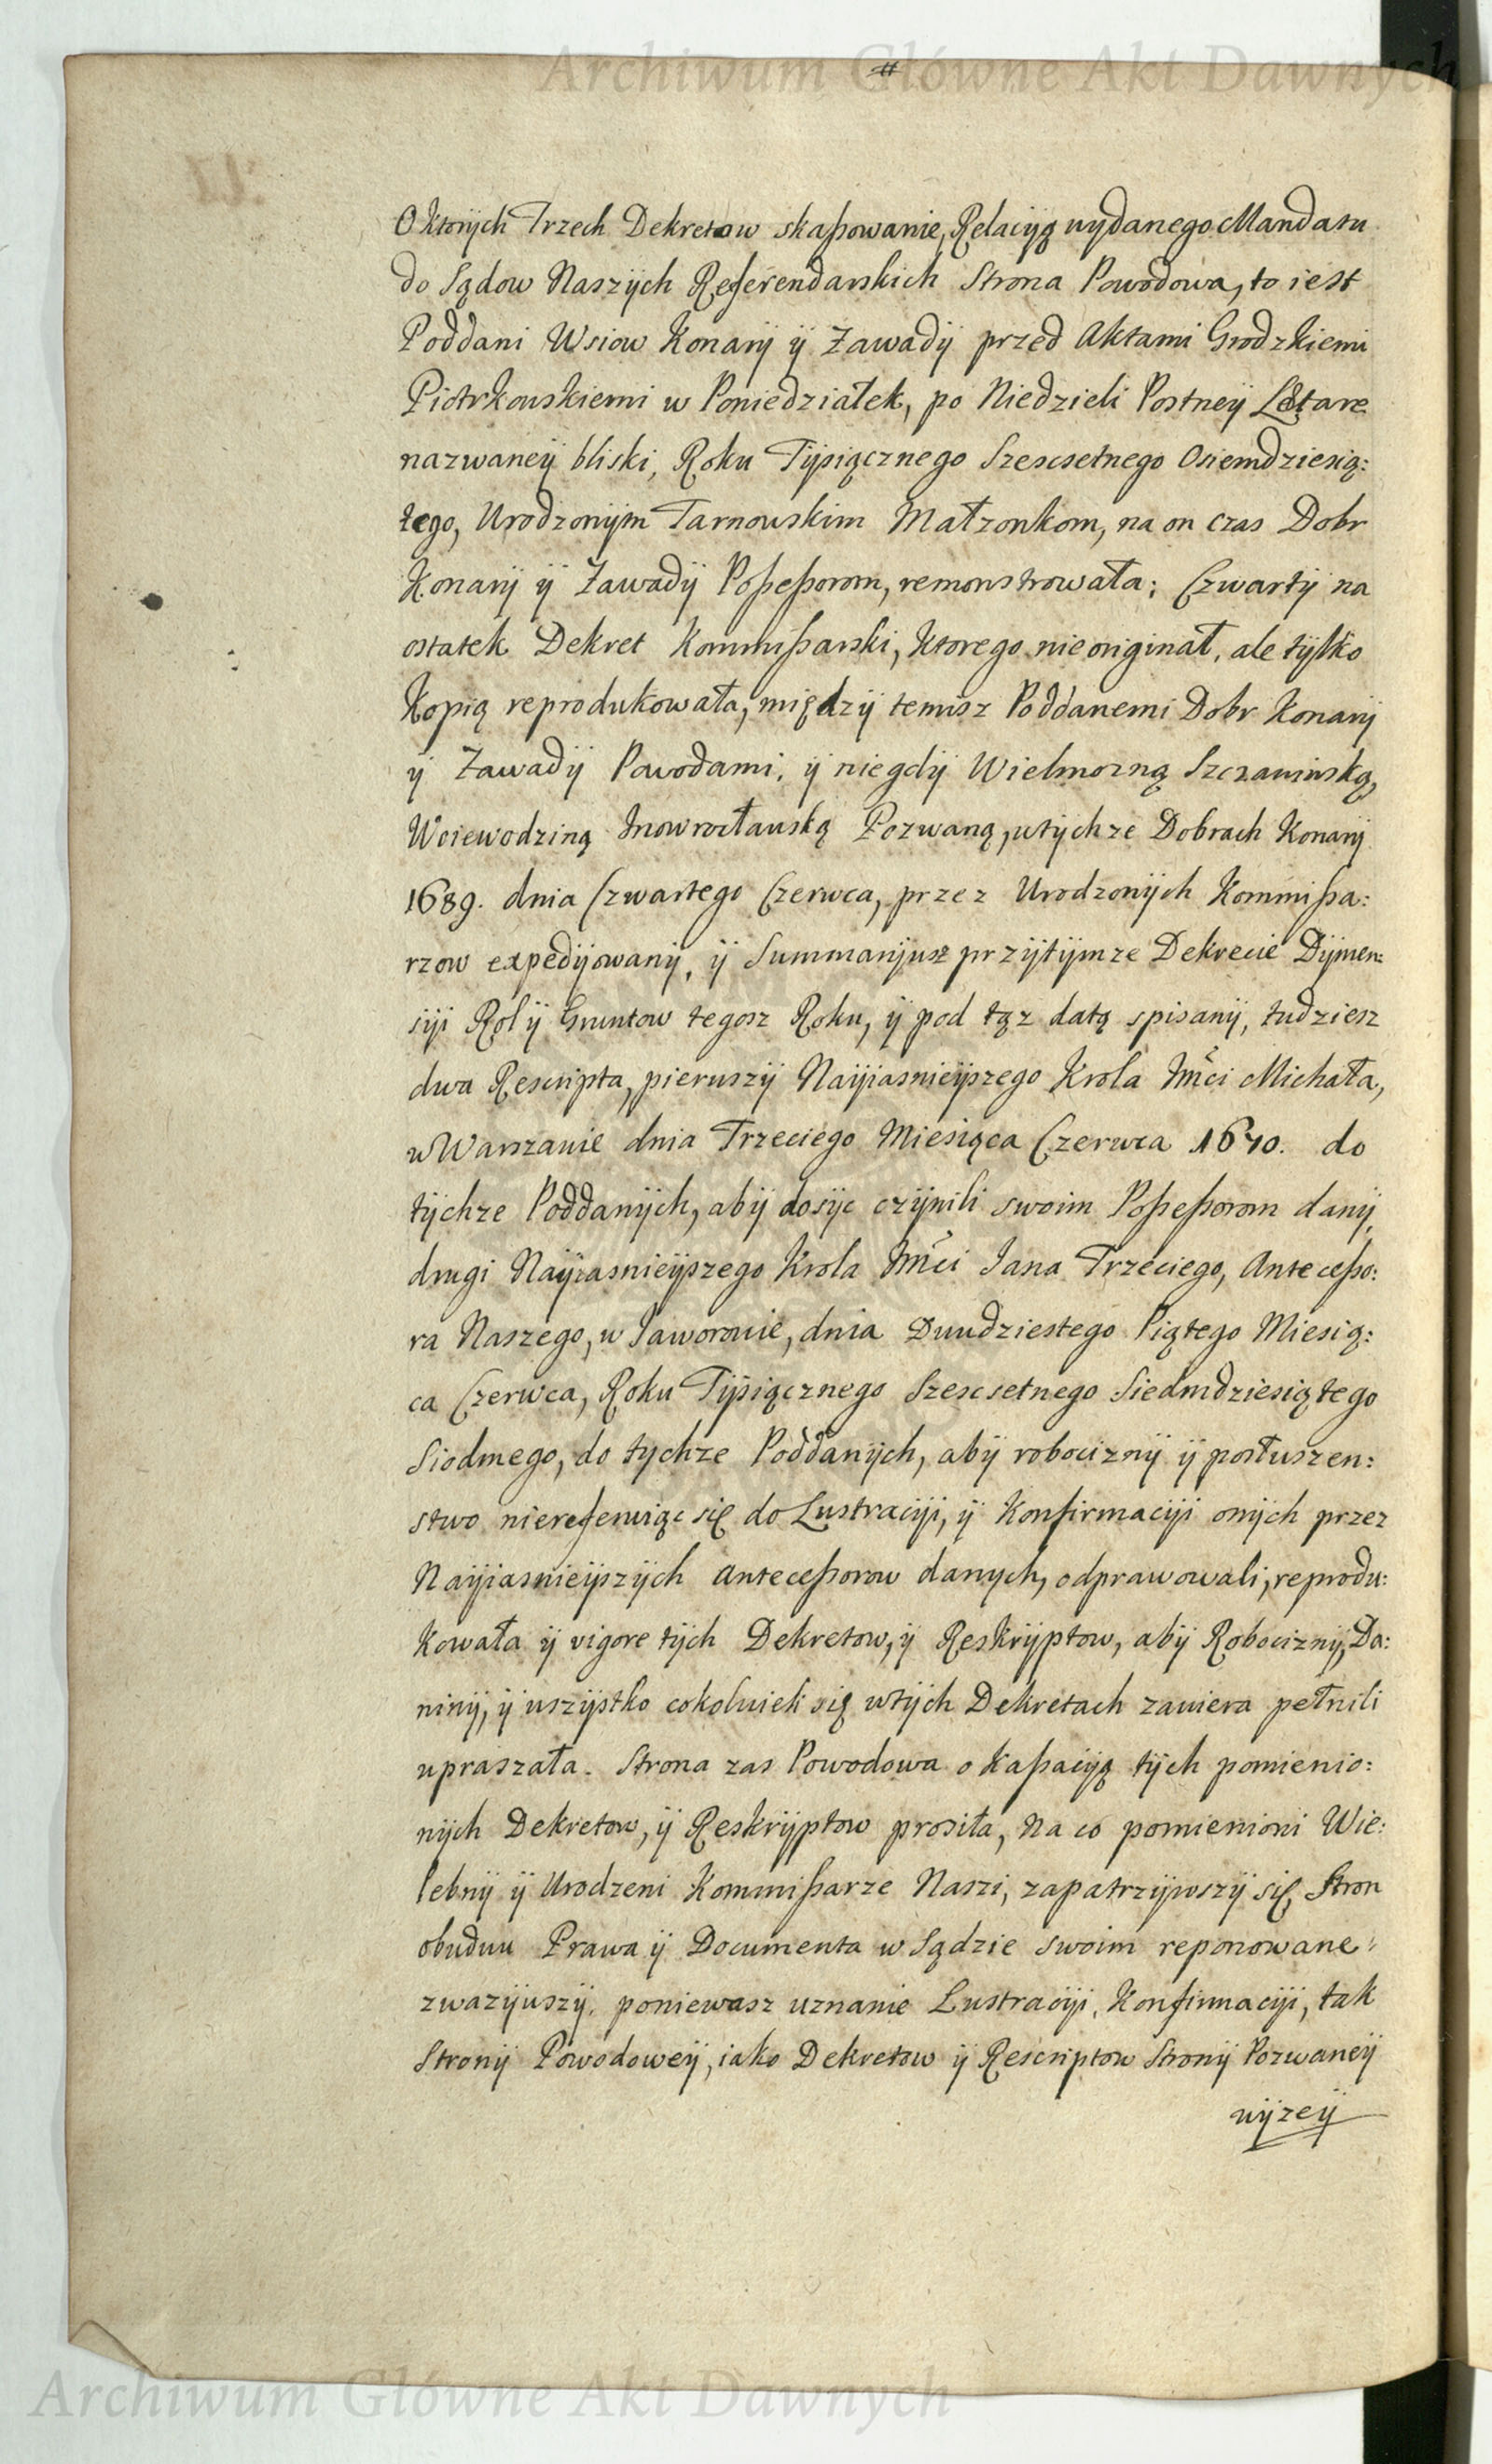 Archiwum Główne Akt Dawnych
#
O ktorÿch Trzech Dekretow skaßowanie, Relacÿą wÿdanego Mandatu
do Sądow Naszÿch Referendarskich Strona Powodowa, to iest
Poddani Wsiow Konarÿ ÿ Zawadÿ przed Aktami Grodzkiemi
Piotrkowskiemi w Poniedziałek, po Niedzieli Postneÿ Lætare
nazwaneÿ bliski, Roku Tÿsiącznego Szescsetnego Osiemdziesią:
tego, Urodzonÿm Tarnowskim Małzonkom, na on czas Dobr
Konarÿ ÿ Zawadÿ Poßeßorom, remonstrowała; Czwartÿ na
ostatek Dekret Kommißarski, ktorego nie originał, ale tÿlko
Kopią reprodukowała, międzÿ temisz Poddanemi Dobr Konarÿ
ÿ Zawadÿ Powodami, ÿ niegdÿ Wielmozną Szczawinską,
Woiewodziną Inowrocławską Pozwaną, wtÿchze Dobrach Konarÿ
1689. dnia Czwartego Czerwca, przez Urodzonÿch Kommißa:
rzow expedÿowanÿ, ÿ Summarÿusz przÿtÿmze Dekrecie Dÿmen:
sÿi Rol ÿ Gruntow tegosz Roku, ÿ pod tąz datą spisanÿ, tudziesz
dwa Rescripta, pierwszÿ Naÿiasnieÿszego Krola Jmći Michała,
w Warszawie dnia Trzeciego Miesiąca Czerwca 1670. do
tÿchze Poddanÿch, abÿ dosÿc czÿnili swoim Poßeßorom danÿ,
drugi Naÿiasnieÿszego Krola Jmći Jana Trzeciego, Anteceßo:
ra Naszego, w Jaworowie, dnia Dwudziestego Piątego Miesią:
ca Czerwca, Roku Tÿsiącznego Szescsetnego Siedmdziesiątego
Siodmego, do tychze Poddanÿch, abÿ robociznÿ ÿ posłuszen:
stwo niereferuiąc się do Lustracÿi, ÿ Konfirmacÿi onÿch przez
Naÿiasnieÿszÿch Anteceßorow danych, odprawowali, reprodu:
kowała ÿ vigore tÿch Dekretow, ÿ Reskrÿptow, abÿ Robociznÿ, Da:
ninÿ, ÿ wszÿstko cokolwiek się wtÿch Dekretach zawiera pełnili
upraszała. Strona zas Powodowa o kaßacÿą tÿch pomienio:
nÿch Dekretow, ÿ Reskrÿptow prosiła, Na co pomienioni Wie:
lebnÿ ÿ Urodzeni Kommißarze Naszi, zapatrzÿwszÿ się, Stron
obudwu Prawa ÿ Documenta w Sądzie swoim reponowane
zwazÿwszÿ, poniewasz uznanie Lustracÿi, Konfirmacÿi, tak
Stronÿ Powodoweÿ, iako Dekretow ÿ Rescriptow Stronÿ Pozwaneÿ
wÿzeÿ
Archiwum Główne Akt Dawnych